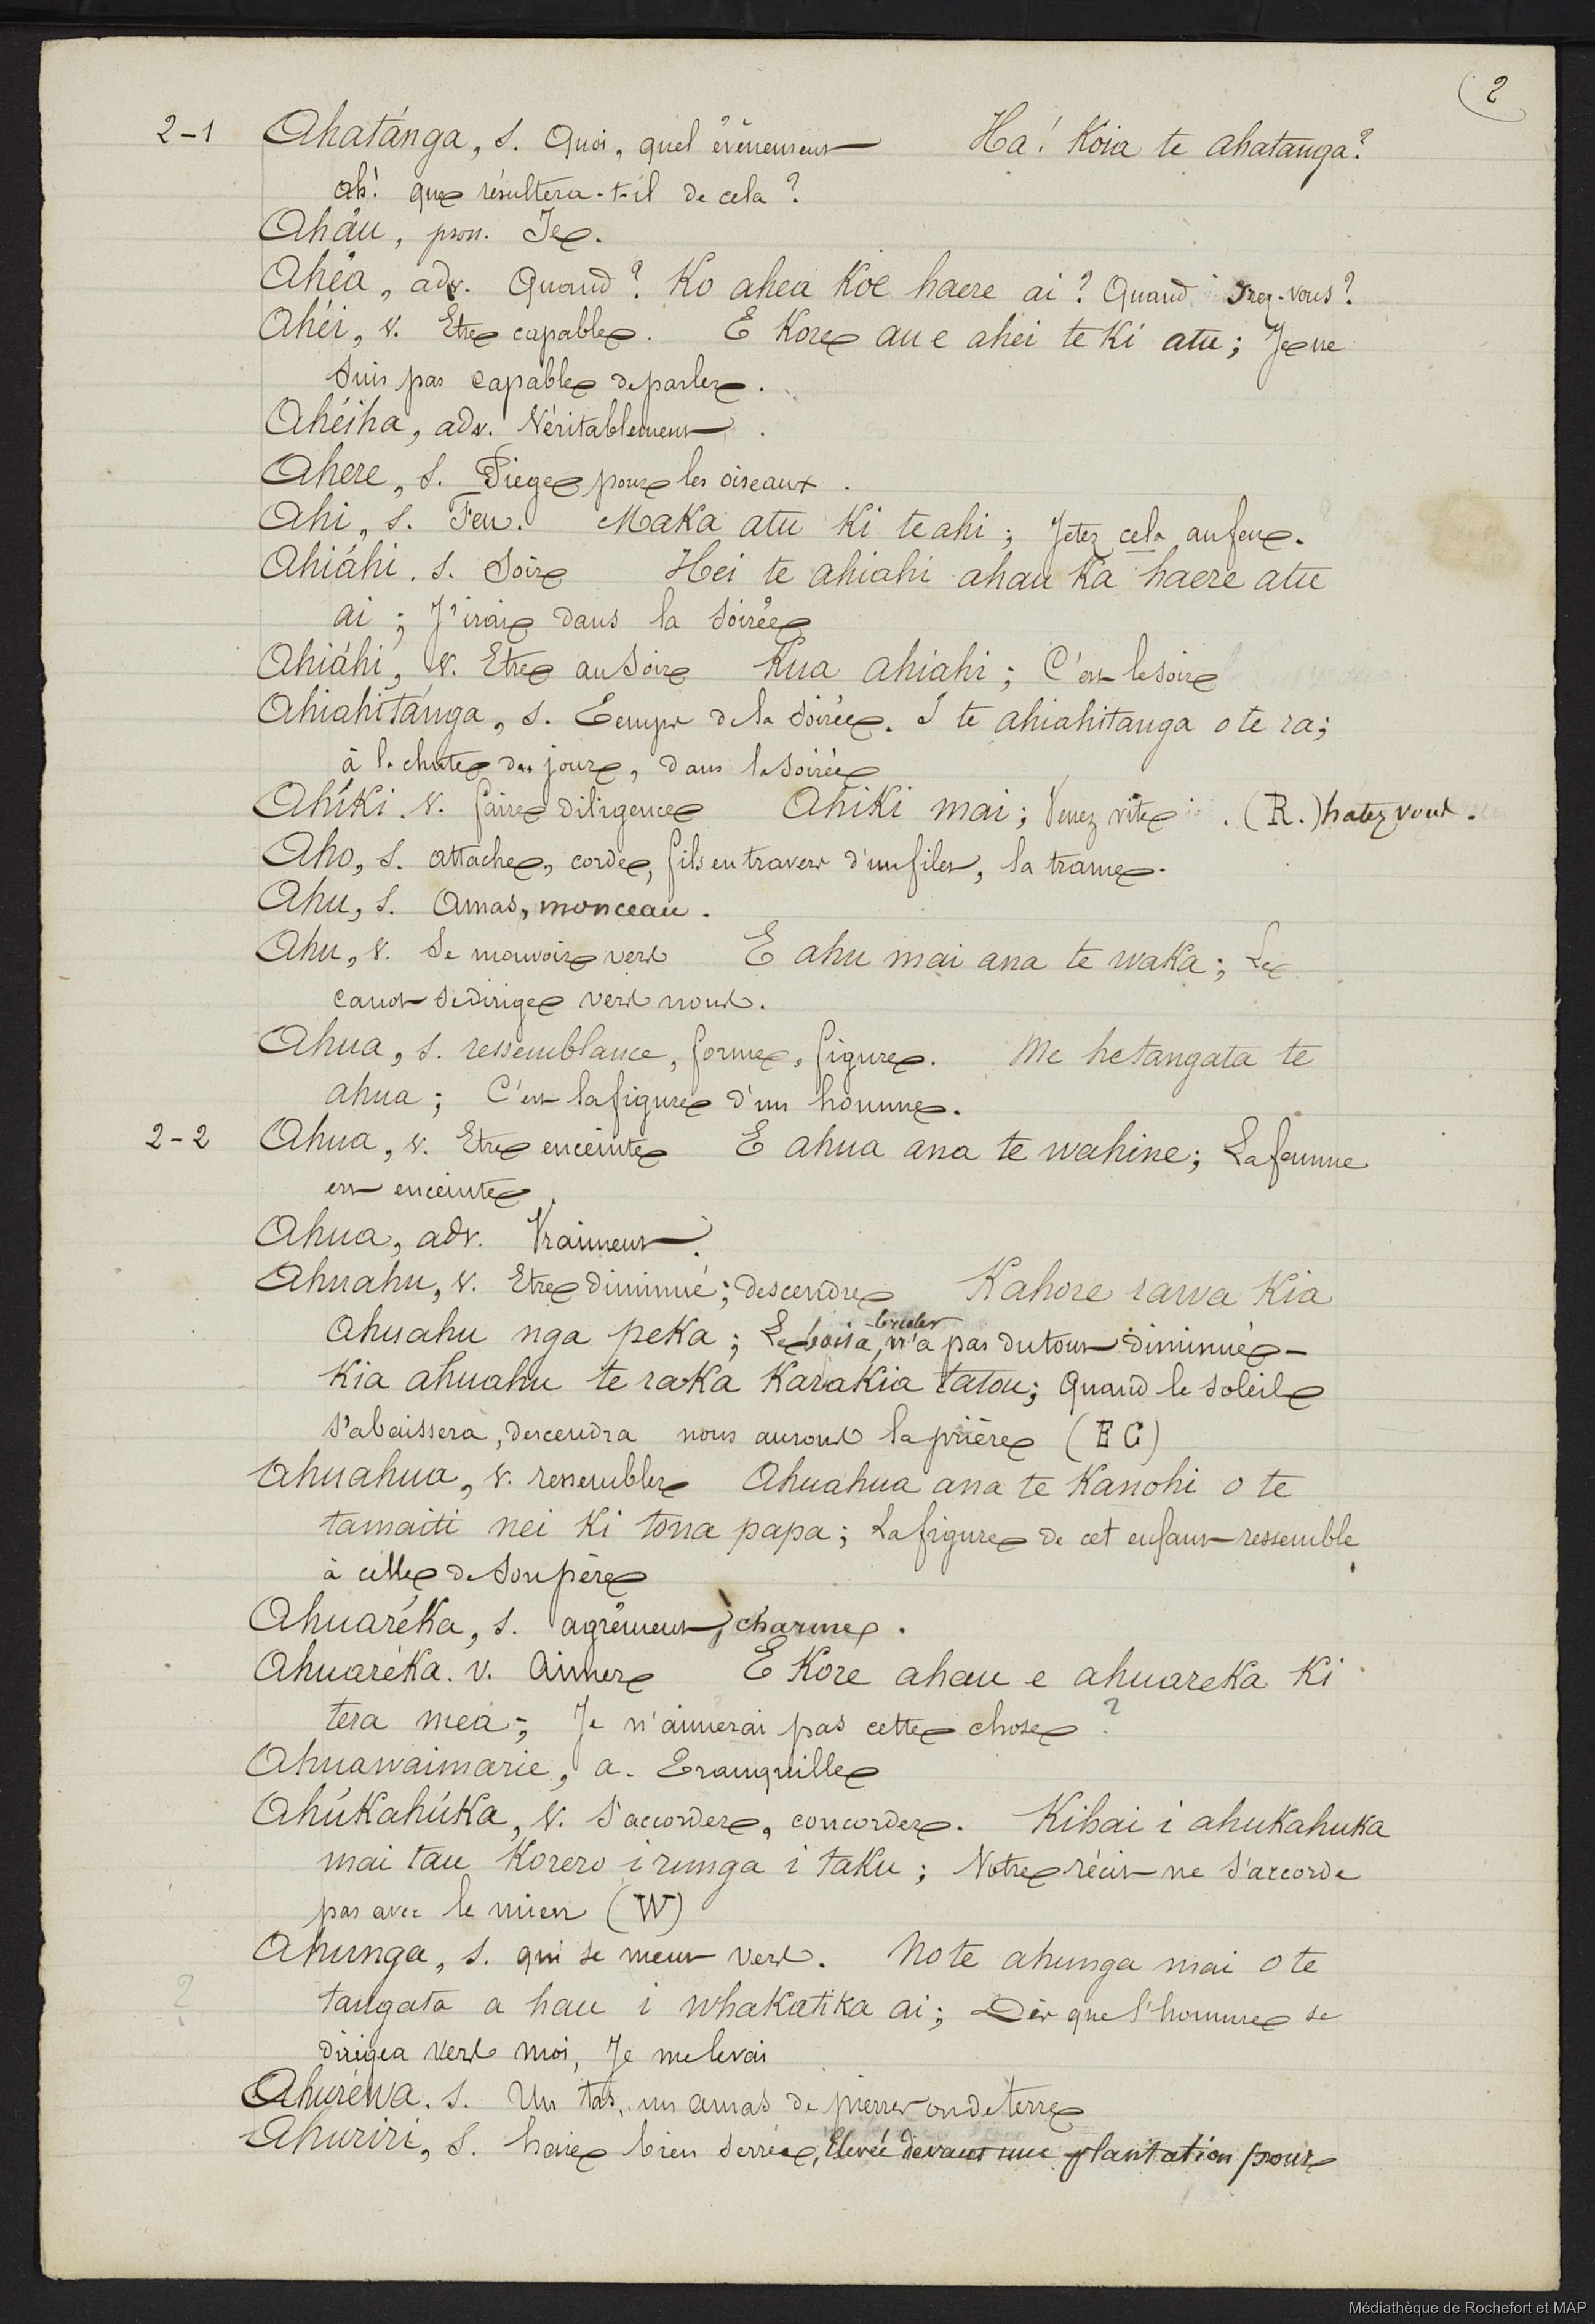 (2
2-1 Ahatánga, s. Quoi, quel évènement Ha! Koia te ahatanga?
ah! que résultera-t-il de cela?
Aháu, pron. Je.
Ahéa, adv. Quand? Ko ahea Koe haere ai? Quand irez-vous?
Ahéi, v. Etre capable. E Kore au e ahei te Ki atu; Je ne
suis pas capable de parler.
Ahéiha, adv. Véritablement.
Ahere, s. Piege pour les oiseaux.
Ahi, s. Feu. Maka atu Ki te ahi; Jetez cela au feu.
Ahiáhi. s. Soir Hei te ahiahi ahau Ka haere atu
ai; J'irai dans la soirée
Ahiáhi, v. Etre au Soir Kua ahiahi; C'est le soir
Ahiahitánga, s. Temps de la soirée. I te ahiahitanga o te ra;
à la chute du jour, dans la soirée
Ahíki. v. faire diligence Ahiki mai; Venez vite. (R.) hatez vous.
Aho, s. attache, corde, fils en travers d'un filet, la trame.
Ahu, s. Amas, monceau.
Ahu, v. Se mouvoir vers E ahu mai ana te waka; Le
canot se dirige vers nous.
Ahua, s. ressemblance, forme, figure. Me he tangata te
ahua; C'est la figure d'un homme.
2-2 Ahua, v. Etre enceinte E ahua ana te wahine; La femme
est enceinte.
Ahua, adv. Vraiment.
Ahuahu, v. Etre diminué; descendre Kahore rawa Kia
ahuahu nga peka; Le bois a bruler, n'a pas du tout diminué -
Kia ahuahu te ra Ka Karakia tatou; Quand le soleil
s'abaissera, descendra nous aurons la prière (E C)
Ahuahua, v. ressembler Ahuahua ana te Kanohi o te
tamaiti nei Ki tona papa; La figure de cet enfant ressemble
à celle de son père
Ahuaréka, s. agrément, charme.
Ahuaréka. v. Aimer E Kore ahau e ahuareka Ki
tera mea; Je n'aimerai pas cette chose?
Ahuawaimarie, a. Tranquille
Ahúkahúka, v. S'accorder, concorder. Kihai i ahukahuka
mai tau Korero i runga i taku; Votre récit ne s'accorde
pas avec le mien (W)
Ahunga, s. qui se meut vers. No te ahunga mai o te
? tangata a hau i whakatika ai; Dès que l'homme se
dirigea vers moi, Je me levai
Ahuréwa. s. Un tas, un amas de pierres ou de terre
Ahuriri, s. haie bien serrée, élevée devant une plantation pour
Médiathèque de Rochefort et MAP